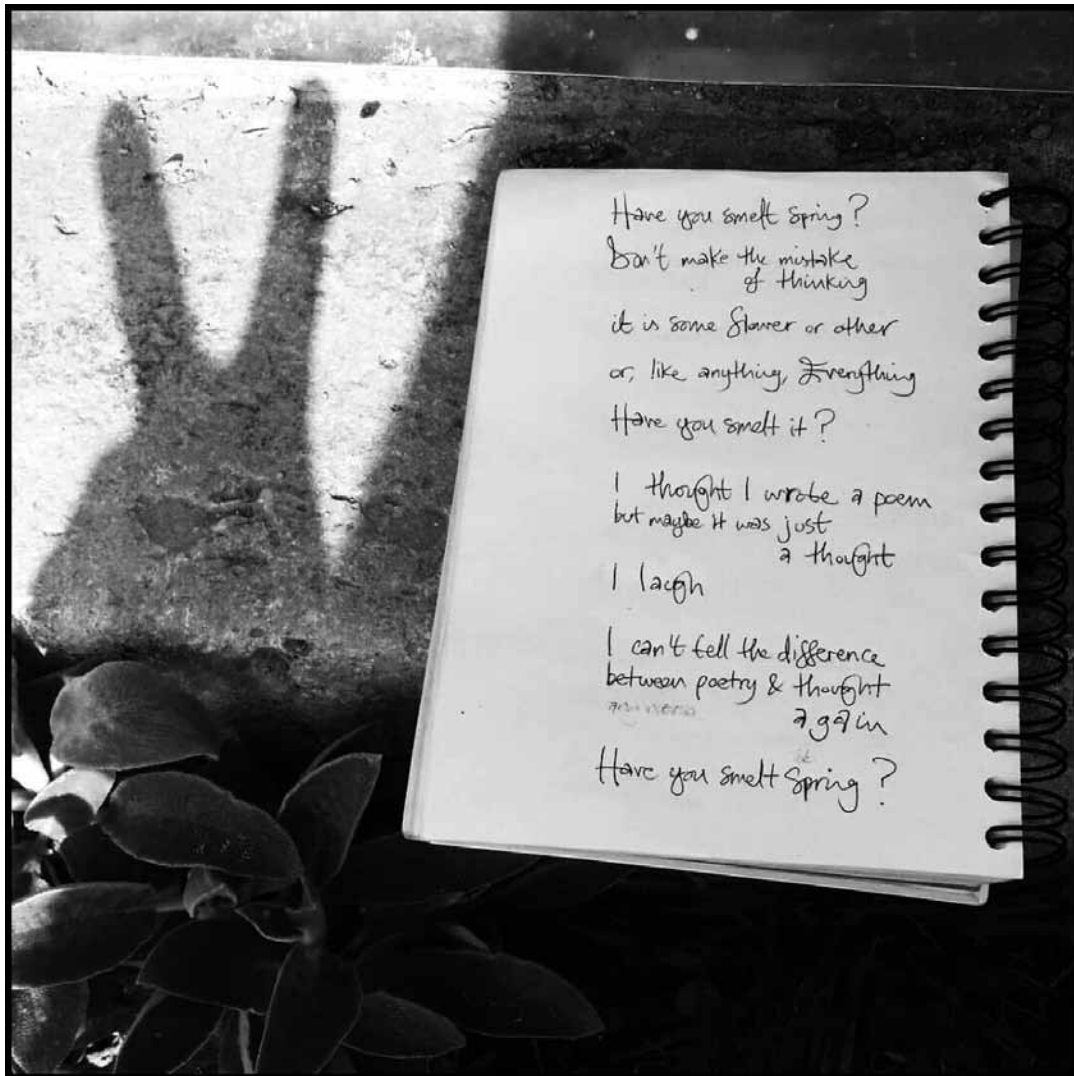 Have you smelt spring?
Don't make the mistake
of thinking
it is some flower or other
or, like anything, Everything
Have you smelt it?
I thought I wrote a poem
but maybe it was just
a thought
I laugh
I can't tell the difference
between poetry & thought
again
Have you smelt Spring?